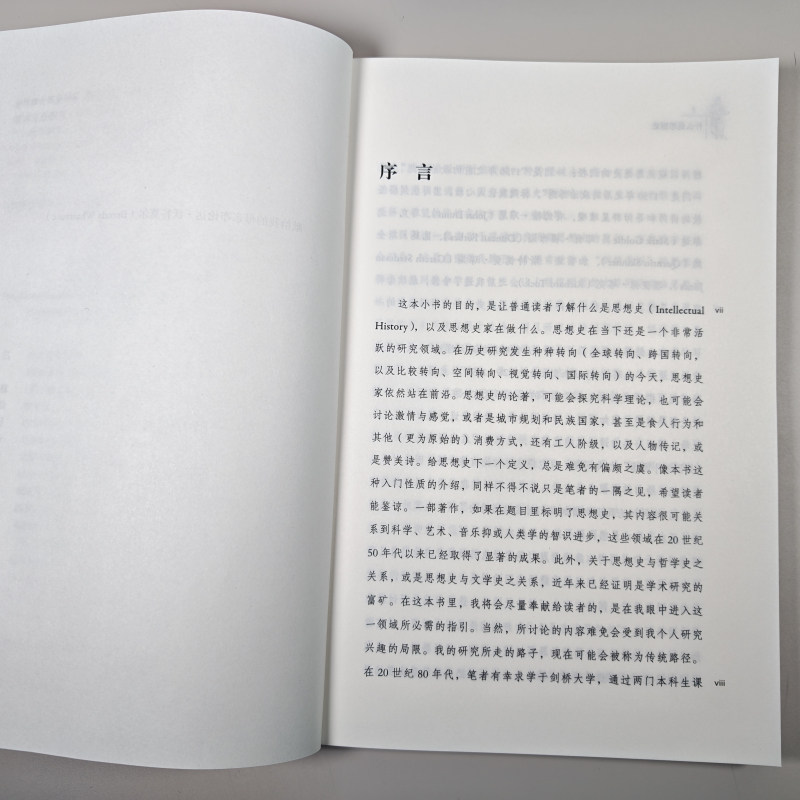 序 言
这本小书的目的，是让普通读者了解什么是思想史（Intellectual vii
History），以及思想史家在做什么。思想史在当下还是一个非常活
跃的研究领域。在历史研究发生种种转向（全球转向、跨国转向，
以及比较转向、空间转向、视觉转向、国际转向）的今天，思想史
家依然站在前沿。思想史的论著，可能会探究科学理论，也可能会
讨论激情与感觉，或者是城市规划和民族国家，甚至是食人行为和
其他（更为原始的）消费方式，还有工人阶级，以及人物传记，或
是赞美诗。给思想史下一个定义，总是难免有偏颇之虞。像本书这
种入门性质的介绍，同样不得不说只是笔者的一隅之见，希望读者
能鉴谅。一部著作，如果在题目里标明了思想史，其内容很可能关
系到科学、艺术、音乐抑或人类学的智识进步，这些领域在 20 世纪
50 年代以来已经取得了显著的成果。此外，关于思想史与哲学史之
关系，或是思想史与文学史之关系，近年来已经证明是学术研究的
富矿。在这本书里，我将会尽量奉献给读者的，是在我眼中进入这
一领域所必需的指引。当然，所讨论的内容难免会受到我个人研究
兴趣的局限。我的研究所走的路子，现在可能会被称为传统路径。
在 20 世纪 80 年代，笔者有幸求学于剑桥大学，通过两门本科生课 viii